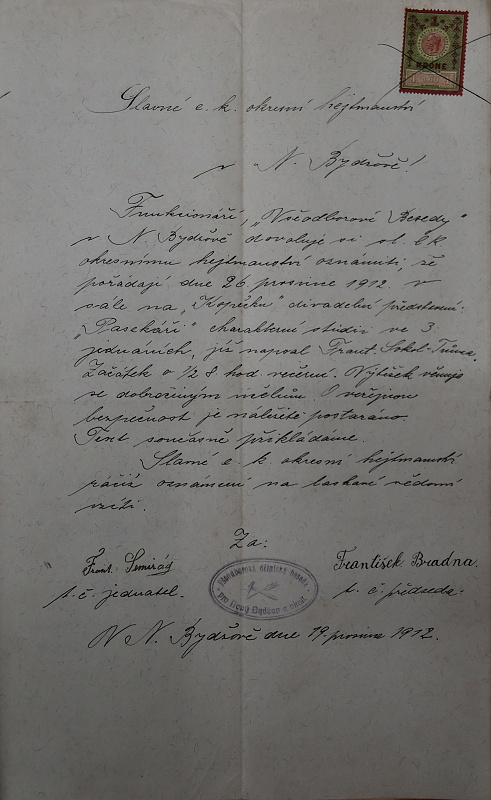 1
KRONE
Slavné c. k. okresní hejtmanství
v N. Bydžově!
Funkcionáři „Všeodborové Besedy"
v N. Bydžově dovolují si sl. c. k.
okresnímu hejtmanství oznámiti, že
pořádají dne 26. prosince 1912. v
sále na „Kopečku" divadelní představení:
„Pasekáři" charakterní studii ve 3
jednáních, již napsal Frant. Sokol-Tůma.
Začátek o 1/2 8 hod. večerní. Výtěžek věnuje
se dobročinným účelům. O veřejnou
bezpečnost je náležitě postaráno.
Text současně přikládáme.
Slavné c. k. okresní hejtmanství
račiž oznámení na laskavé vědomí
vzíti.
Za:
Frant. Semirád
t. č. jednatel.
František Bradna.
t. č. předseda.
Všeodborová dělnická beseda
pro Nový Bydžov a okolí
V N. Bydžově dne 19. prosince 1912.